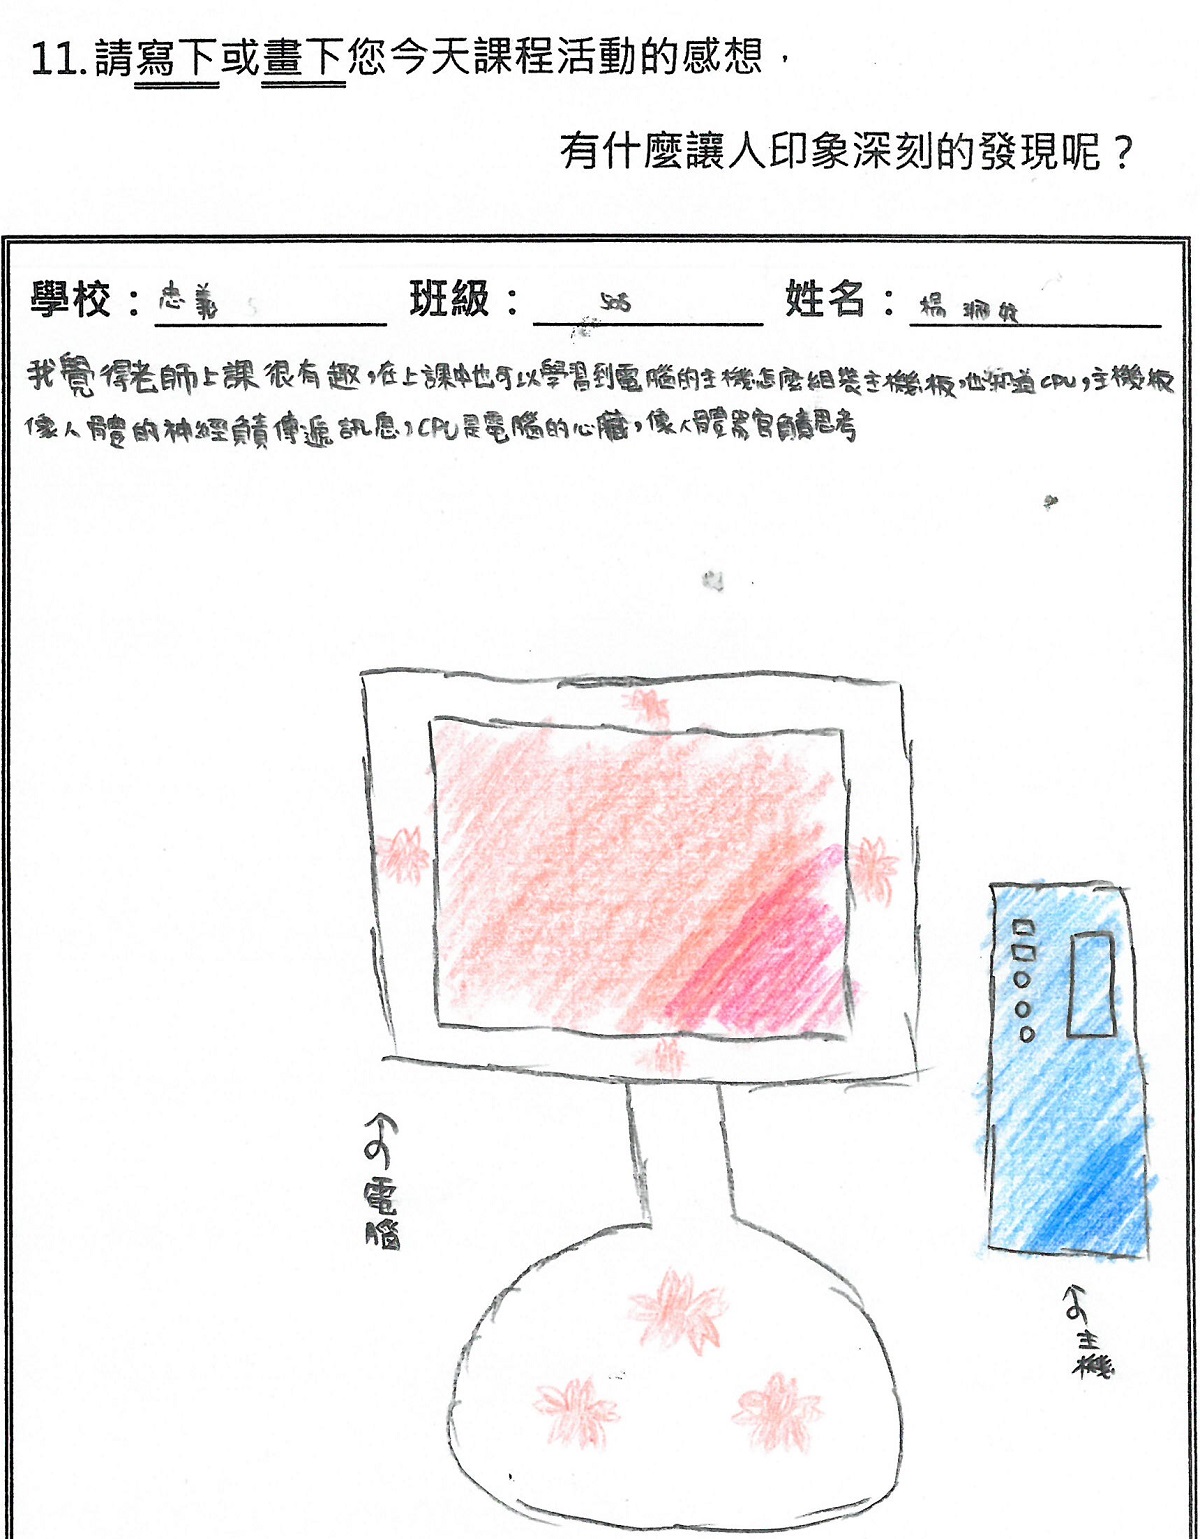 11.請寫下或畫下您今天課程活動的感想，
有什麼讓人印象深刻的發現呢？
學校：忠義 班級：505 姓名：楊珮妏
我覺得老師上課很有趣，在上課中也可以學習到電腦的主機怎麼組裝主機板，也知道CPU，主機板
像人體的神經負責傳遞訊息，CPU是電腦的心臟，像人體器官負責思考
電腦
主機